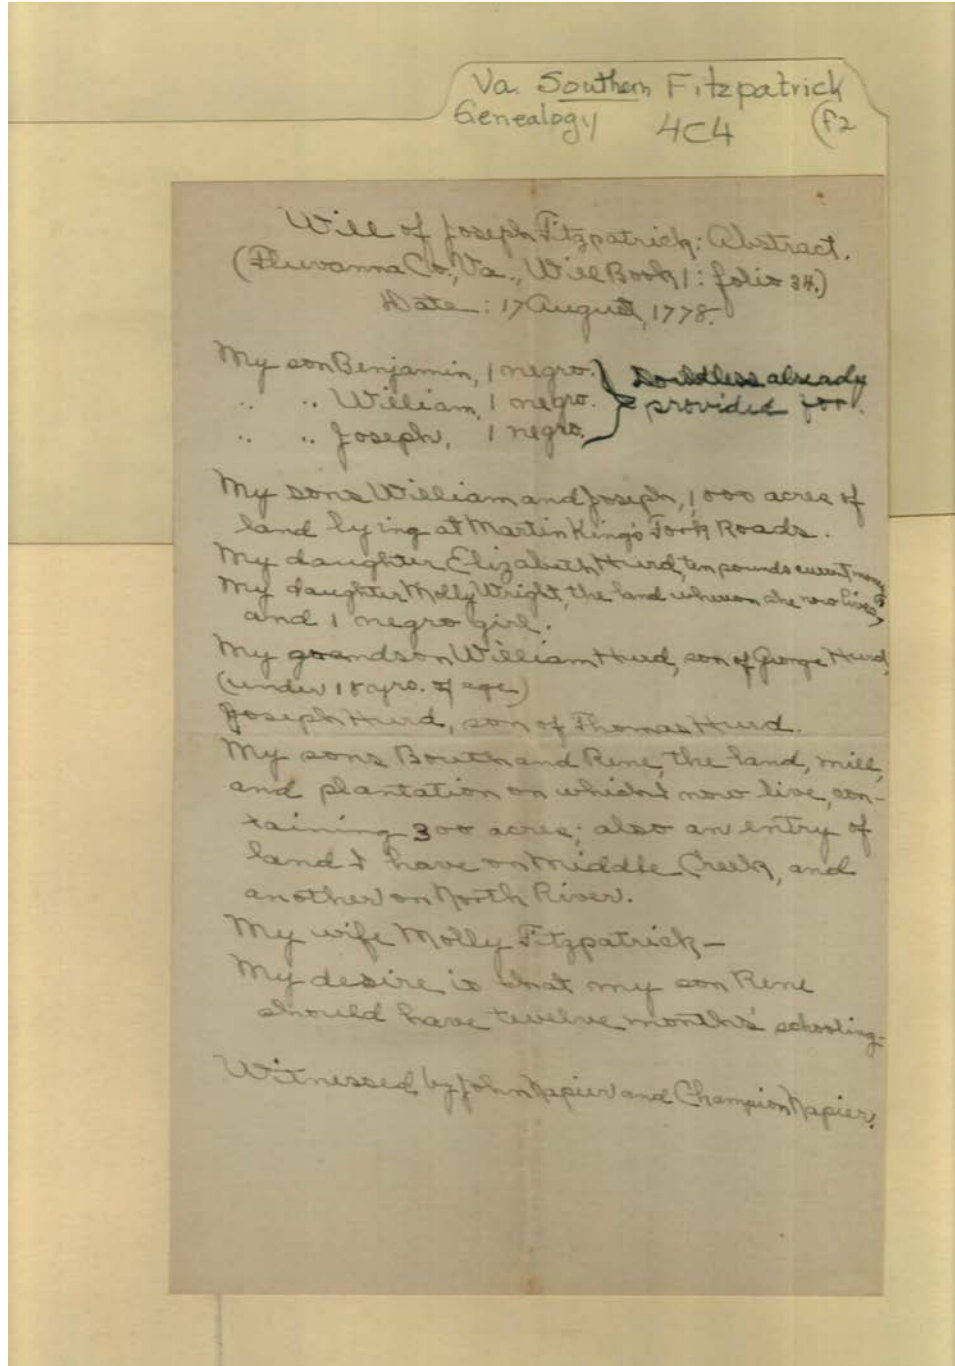 Va. Southern Fitzpatrick
Genealogy 4C4 (P2
Will of Joseph Fitzpatrick: Abstract.
(Fluvanna Co., Va., Will Book 1: folio 34.)
Date: 17 August, 1778.
My son Benjamin, 1 negro. } Doubtless already
" " William, 1 negro. } provided for.
" " Joseph, 1 negro. }
My sons William and Joseph, 1,000 acres of
land lying at Martin King's Fork Roads.
My daughter Elizabeth Hurd, ten pounds current money
My daughter Molly Wright, the land whereon she now lives,
and 1 negro girl.
My grandson William Hurd, son of George Hurd,
(under 18 yrs. of age)
Joseph Hurd, son of Thomas Hurd.
My sons Bouth and Rene, the land, mill,
and plantation on which I now live, con-
taining 300 acres; also an entry of
land I have on Middle Creek, and
another on North River.
My wife Molly Fitzpatrick—
My desire is that my son Rene
should have twelve months' schooling.
Witnessed by John Napier and Champion Napier.